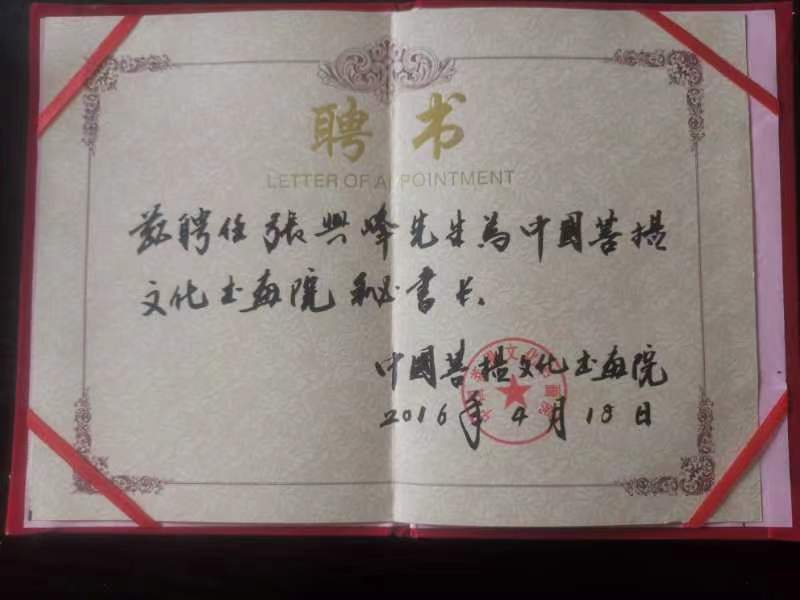 聘书
LETTER OF APPOINTMENT
兹聘任張興峰先生為中國菩提
文化书画院秘書长
中國菩提文化书画院
2016年4月18日